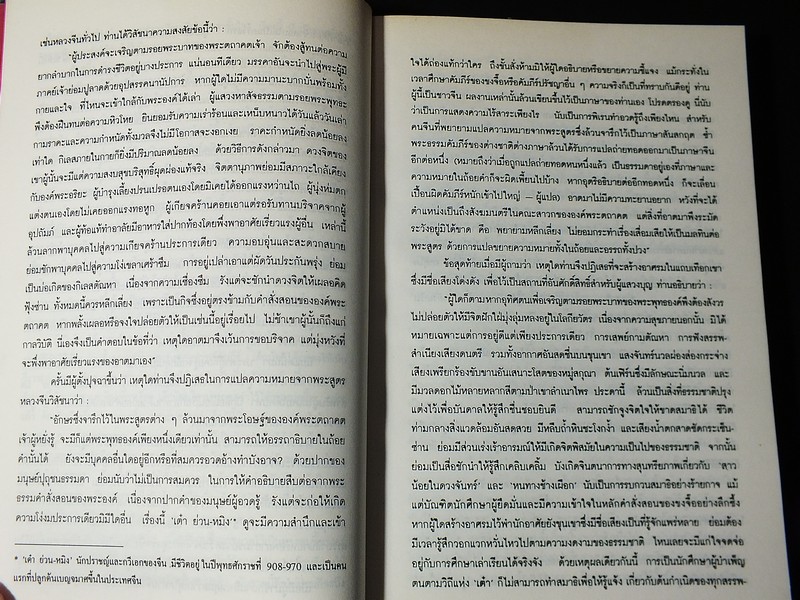 เช่นหลวงจีนทั่วไป ท่านได้วิสัชนาความสงสัยข้อนี้ว่า :
"ผู้ประสงค์จะเจริญตามรอยพระบาทของพระตถาคตเจ้า จักต้องสู้ทนต่อความ
ยากลำบากในการดำรงชีวิตอยู่บางประการ แน่นอนทีเดียว มรรคาอันจะนำไปสู่พระผู้มี
ภาคย์เจ้าย่อมปูลาดด้วยอุปสรรคนานัปการ หากผู้ใดไม่มีความมานะบากบั่นพร้อมทั้ง
กายและใจ ที่ไหนจะเข้าใกล้กับพระองค์ได้เล่า ผู้แสวงหาสัจธรรมตามรอยพระพุทธะ
พึงต้องฝืนทนต่อความหิวโหย ยินยอมรับความเร่าร้อนและเหน็บหนาวได้วันแล้ววันเล่า
กามราคะและความกำหนัดทั้งมวลจึงไม่มีโอกาสจะงอกเงย ราคะกำหนัดยิ่งลดน้อยลง
เท่าใด กิเลสภายในกายก็ยิ่งมีปริมาณลดน้อยลง ด้วยวิธีการดังกล่าวมา ดวงจิตของ
เขาผู้นั้นจะมีแต่ความสงบสุขบริสุทธิ์ผุดผ่องแท้จริง จิตตานุภาพย่อมมีสภาวะใกล้เคียง
กับองค์พระอริยะ ผู้บำรุงเลี้ยงปรนเปรอตนเองโดยมิเคยได้ออกแรงหว่านไถ ผู้นุ่งห่มตก
แต่งตนเองโดยไม่เคยออกแรงทอหูก ผู้เกียจคร้านคอยเอาแต่รอรับทานบริจาคจากผู้
อุปถัมภ์ และผู้ท้อแท้ทำอาลัยมีอาหารใส่ปากท้องโดยพึ่งพาอาศัยเรี่ยวแรงผู้อื่น เหล่านี้
ล้วนลากพาบุคคลไปสู่ความเกียจคร้านประการเดียว ความอบอุ่นและสะดวกสบาย
ย่อมชักพาบุคคลไปสู่ความโง่เขลาเศร้าซึม การอยู่เปล่าเอาแต่ผัดวันประกันพรุ่ง ย่อม
เป็นบ่อเกิดของกิเลสตัณหา เนื่องจากความเชื่องซึม รังแต่จะชักนำดวงจิตให้เผลอคิด
ฟุ้งซ่าน ทั้งหมดนี้ควรหลีกเลี่ยง เพราะเป็นกิจซึ่งอยู่ตรงข้ามกับคำสั่งสอนขององค์พระ
ตถาคต หากพลั้งเผลอหรือจงใจปล่อยตัวให้เป็นเช่นนี้อยู่เรื่อยไป ไม่ช้าเขาผู้นั้นก็ถึงแก่
กาลวิบัติ นี่เองจึงเป็นคำตอบในข้อที่ว่า เหตุใดอาตมาจึงเว้นการขอบริจาค แต่มุ่งหวังที่
จะพึ่งพาอาศัยเรี่ยวแรงของอาตมาเอง"
ครั้นมีผู้ตั้งปุจฉาขึ้นว่า เหตุใดท่านจึงปฏิเสธในการแปลความหมายจากพระสูตร
หลวงจีนวิสัชนาว่า :
"อักษรซึ่งจารึกไว้ในพระสูตรต่าง ๆ ล้วนมาจากพระโอษฐ์ขององค์พระตถาคต
เจ้าผู้หยั่งรู้ จะมีก็แต่พระพุทธองค์เพียงหนึ่งเดียวเท่านั้น สามารถให้อรรถาธิบายในถ้อย
คำนั้นได้ ยังจะมีบุคคลอื่นใดอยู่อีกหรือที่สมควรอวดอ้างทำบังอาจ? ด้วยปากของ
มนุษย์ปุถุชนธรรมดา ย่อมนับว่าไม่เป็นการสมควร ในการให้คำอธิบายสืบต่อจากพระ
ธรรมคำสั่งสอนของพระองค์ เนื่องจากปากคำของมนุษย์ผู้อวดรู้ รังแต่จะก่อให้เกิด
ความโง่งมประการเดียวมิมีใดอื่น เรื่องนี้ 'เต๋า ย่วน-หมิง'* ดูจะมีความสำนึกและเข้า
* 'เต๋า ย่วน-หมิง' นักปราชญ์และกวีเอกของจีน มีชีวิตอยู่ในปีพุทธศักราชที่ 908-970 และเป็นคน
แรกที่ปลูกต้นเบญจมาศขึ้นในประเทศจีน
ใจได้ถ่องแท้กว่าใคร ถึงขั้นสั่งห้ามมิให้ผู้ใดอธิบายหรือขยายความชี้แจง แม้กระทั่งใน
เวลาศึกษาคัมภีร์ของขงจื้อหรือคัมภีร์ปรัชญาอื่น ๆ ความจริงก็เป็นที่ทราบกันดีอยู่ ท่าน
ผู้นี้เป็นชาวจีน ผลงานเหล่านั้นล้วนเขียนขึ้นไว้เป็นภาษาของท่านเอง โปรดตรองดู นี่นับ
ว่าเป็นการแสดงความไร้สาระเพียงไร นับเป็นการพิเรนทำอวดรู้ถึงเพียงไหน สำหรับ
คนจีนที่พยายามแปลความหมายจากพระสูตรซึ่งล้วนจารึกไว้เป็นภาษาสันสกฤต ซ้ำ
พระธรรมคัมภีร์ของต่างชาติต่างภาษาล้วนได้รับการแปลถ่ายทอดออกมาเป็นภาษาจีน
อีกต่อหนึ่ง (หมายถึงว่าเมื่อถูกแปลถ่ายทอดหนหนึ่งแล้ว เป็นธรรมดาอยู่เองที่ภาษาและ
ความหมายในถ้อยคำก็จะผิดเพี้ยนไปบ้าง หากอุตริอธิบายต่ออีกทอดหนึ่ง ก็จะเลื่อน
เปื้อนผิดคัมภีร์หนักเข้าไปใหญ่ — ผู้แปล) อาตมาไม่มีความทะยานอยาก หวังที่จะได้
ตำแหน่งเป็นถึงสังฆมนตรีในคณะสาวกขององค์พระตถาคต แต่สิ่งที่อาตมาพึงระมัด
ระวังอยู่มิได้ขาด คือ พยายามหลีกเลี่ยง ไม่ยอมกระทำเรื่องเสื่อมเสียให้เป็นมลทินต่อ
พระสูตร ด้วยการแปลขยายความหมายทั้งในถ้อยและอรรถทั้งปวง"
ข้อสุดท้ายเมื่อมีผู้ถามว่า เหตุใดท่านจึงปฏิเสธที่จะสร้างอาศรมในแถบเทือกเขา
ซึ่งมีชื่อเสียงโด่งดัง เพื่อไว้เป็นสถานที่อันศักดิ์สิทธิ์สำหรับผู้แสวงบุญ ท่านอธิบายว่า :
"ผู้ใดก็ตามหากอุทิศตนเพื่อเจริญตามรอยพระบาทของพระพุทธองค์พึงต้องสังวร
ไม่ปล่อยตัวให้มีจิตฝักใฝ่มุ่งลุ่มหลงอยู่ในโลกียวัตร เนื่องจากความสุขภายนอกนั้น มิได้
หมายเฉพาะแต่การอยู่ดีแต่เพียงประการเดียว การเสพย์กามตัณหา การฟังสรรพ-
สำเนียงเสียงดนตรี รวมทั้งอากาศอันสดชื่นบนขุนเขา แสงจันทร์นวลผ่องส่องกระจ่าง
เสียงเพรียกร้องขับขานอันเสนาะโสตของหมู่สกุณา ต้นเฟิร์นซึ่งมีลักษณะนิ่มนวล และ
มีมวลดอกไม้หลายหลากสีตามป่าเขาลำเนาไพร ประดานี้ ล้วนเป็นสิ่งที่ธรรมชาติปรุง
แต่งไว้เพื่อบันดาลให้รู้สึกชื่นชอบยินดี สามารถชักจูงจิตใจให้ขาดสมาธิได้ ชีวิต
ท่ามกลางสิ่งแวดล้อมอันสดสวย มีหลืบถ้ำหินชะโงกง้ำ และเสียงน้ำตกสาดซัดกระเซ็น-
ซ่าน ย่อมมีส่วนเร่งเร้าอารมณ์ให้มีเกิดจิตพิสมัยในความเป็นไปของธรรมชาติ จากนั้น
ย่อมเป็นสื่อชักนำให้รู้สึกเคลิบเคลิ้ม บังเกิดจินตนาการทางสุนทรียภาพเกี่ยวกับ 'สาว
น้อยในดวงจันทร์' และ 'หนทางช้างเผือก' นับเป็นการรบกวนสมาธิอย่างร้ายกาจ แม้
แต่บัณฑิตนักศึกษาผู้ยึดมั่นและมีความเข้าใจในหลักคำสั่งสอนของขงจื้ออย่างลึกซึ้ง
หากผู้ใดสร้างอาศรมไว้พำนักอาศัยยังขุนเขาซึ่งมีชื่อเสียงเป็นที่รู้จักแพร่หลาย ย่อมต้อง
มีเวลารู้สึกวอกแวกหวั่นไหวไปตามความงดงามของธรรมชาติ ไหนเลยจะมีแก่ใจจดจ่อ
อยู่กับการศึกษาเล่าเรียนได้จริงจัง ด้วยเหตุผลเดียวกันนี้ การเป็นนักศึกษาผู้บำเพ็ญ
ตนตามวิถีแห่ง 'เต๋า' ก็ไม่สามารถทำสมาธิเพื่อให้รู้แจ้ง เกี่ยวกับต้นกำเนิดของทุกสรรพ-